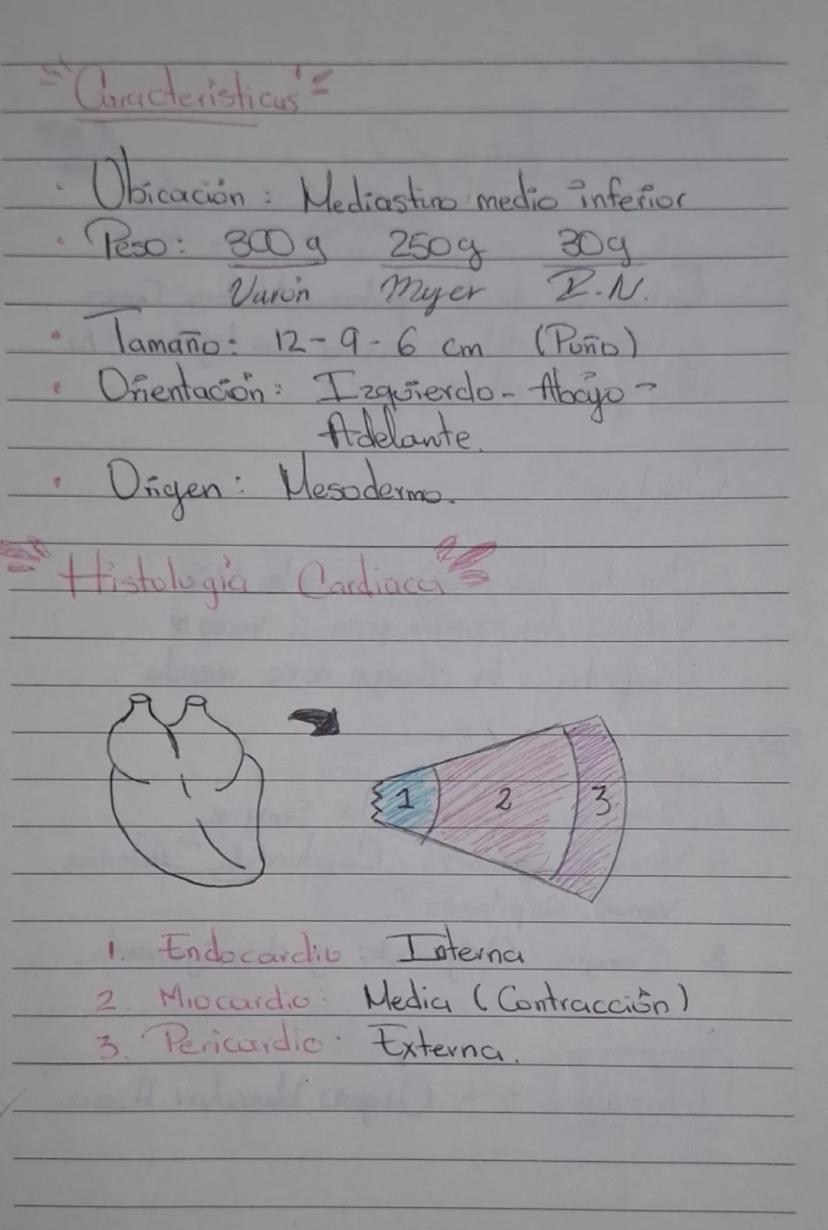 "Caracteristicas"
· Ubicación: Mediastino medio inferior
· Peso: 300g 250g 30g
Varón Mujer R.N.
· Tamaño: 12-9-6 cm (Puño)
· Orientación: Izquierdo- Abajo-
Adelante.
· Origen: Mesodermo.
"Histología Cardiaca"
1 2 3
1. Endocardio: Interna
2. Miocardio: Media (Contracción)
3. Pericardio: Externa.